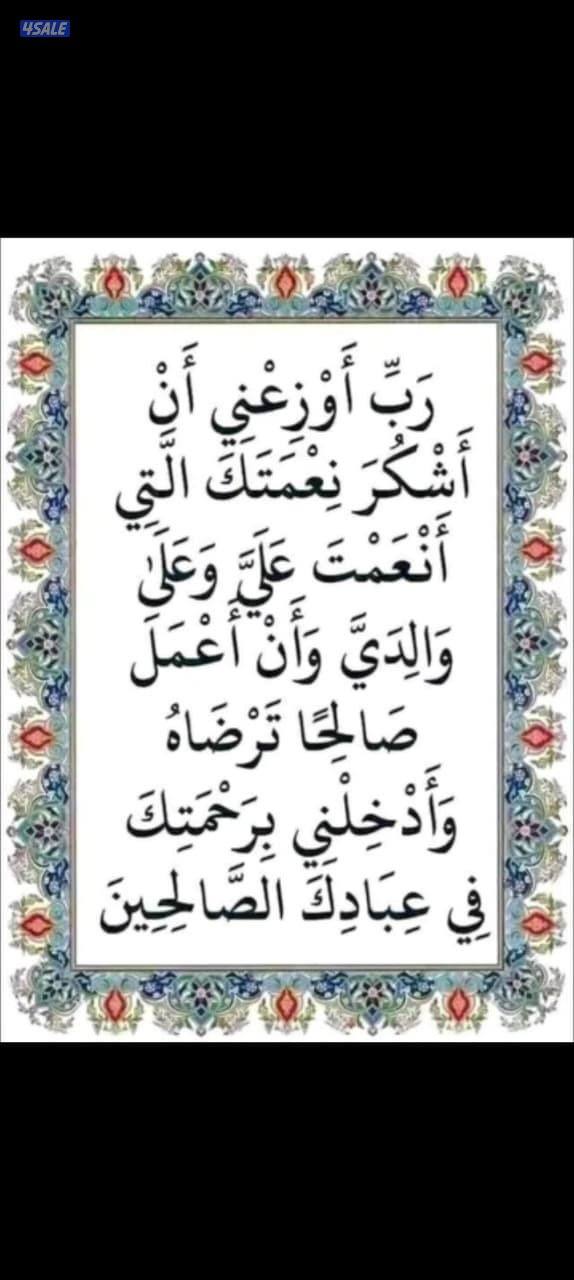 4SALE
رَبِّ أَوْزِعْنِي أَنْ
أَشْكُرَ نِعْمَتَكَ الَّتِي
أَنْعَمْتَ عَلَيَّ وَعَلَىٰ
وَالِدَيَّ وَأَنْ أَعْمَلَ
صَالِحًا تَرْضَاهُ
وَأَدْخِلْنِي بِرَحْمَتِكَ
فِي عِبَادِكَ الصَّالِحِينَ